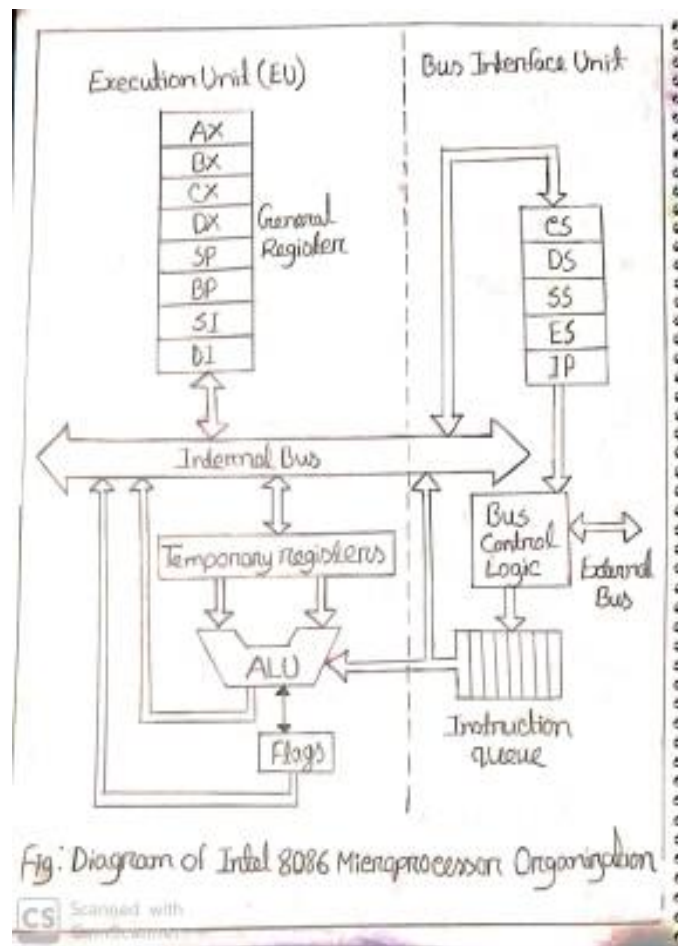 Execution Unit (EU)
Bus Interface Unit
AX
BX
CX
DX
SP
BP
SI
DI
General
Register
CS
DS
SS
ES
IP
Internal Bus
Bus
Control
Logic
External
Bus
Temporary registers
ALU
Flags
Instruction
queue
Fig: Diagram of Intel 8086 Microprocessor Organization
CS
Scanned with
CamScanner